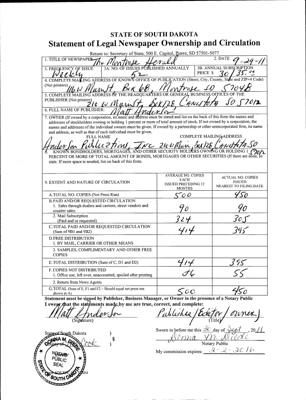 STATE OF SOUTH DAKOTA
Statement of Legal Newspaper Ownership and Circulation
Return to: Secretary of State, 500 E. Capitol, Pierre, SD 57501-5077
1. TITLE OF NEWSPAPER Montrose Herald 2. DATE 9-29-11
3. FREQUENCY OF ISSUE Weekly 3A. NO. OF ISSUES PUBLISHED ANNUALLY 52 3B. ANNUAL SUBSCRIPTION PRICE $ 30/35.00
4. COMPLETE MAILING ADDRESS OF KNOWN OFFICE OF PUBLICATION (Street, City, County, State and ZIP+4 Code) (Not printers)
Main St, Box 6B, Montrose SD 57048
5. COMPLETE MAILING ADDRESS OF THE HEADQUARTERS OF GENERAL BUSINESS OFFICES OF THE PUBLISHER (Not printer)
Main St, Canistota SD 57012
6. FULL NAME OF PUBLISHER: Matt Anderson
7. OWNER (If owned by a corporation, its name and address must be stated and also
addresses of stockholders owning or holding 1 percent or more of total amount of stock. If not owned by a corporation, the
names and addresses of the individual owners must be given. If owned by a partnership or other unincorporated firm, its name
and address, as well as that of each individual must be given.
FULL NAME COMPLETE MAILING ADDRESS
Anderson Publications, Inc Main, Canistota SD
8. KNOWN BONDHOLDERS, MORTGAGEES, AND OTHER SECURITY HOLDERS OWNING OR HOLDING 1
PERCENT OR MORE OF TOTAL AMOUNT OF BONDS, MORTGAGES OR OTHER SECURITIES (If there are none, so
state. If more space is needed, list on back of this form.
9. EXTENT AND NATURE OF CIRCULATION
AVERAGE NO. COPIES EACH ISSUED PRECEDING 12 MONTHS
ACTUAL NO. COPIES ISSUED NEAREST TO FILING DATE
A. TOTAL NO. COPIES (Net Press Run) 500 450
B. PAID AND/OR REQUESTED CIRCULATION
1. Sales through dealers and carriers, street vendors and counter sales 90 90
2. Mail Subscription (Paid and/or requested) 324 305
C. TOTAL PAID AND/OR REQUESTED CIRCULATION (Sum of 9B1 and 9B2) 414 395
D. FREE DISTRIBUTION
1. BY MAIL, CARRIER OR OTHER MEANS
2. SAMPLES, COMPLIMENTARY AND OTHER FREE COPIES
E. TOTAL DISTRIBUTION (Sum of C, D1 and D2) 414 395
F. COPIES NOT DISTRIBUTED
1. Office use, left over, unaccounted, spoiled after printing 86 55
2. Return from News Agents
G. TOTAL (Sum of E, F1 and F2 - Should equal net press run shown in A) 500 450
Statement must be signed by Publisher, Business Manager, or Owner in the presence of a Notary Public
I swear that the statements made by me are true, correct, and complete:
Matt Anderson Publisher/Editor/owner
(Signature) (Title)
State of South Dakota )
)§
Sworn to before me this day of Sept, 2011
Notary Public
My commission expires 2-2-2016
NOTARY PUBLIC
SEAL
SOUTH DAKOTA